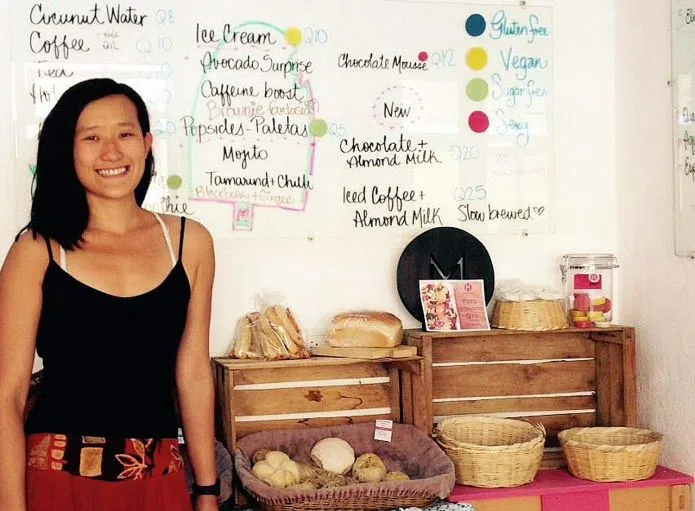 Cocunut Water Q8
Coffee Q10
Tea
Ice Cream Q10
Avocado Surprise
Caffeine boost
Brownie fantasia
Popsides-Paletas Q5
Mojito
Tamarind + Chilli
Blackberry + Ginger
Chocolate Mousse Q12
New
Chocolate +
Almond Milk Q20
Iced Coffee + Q25
Almond Milk Slow brewed
Gluten free
Vegan
Sugar free
Sexy
M